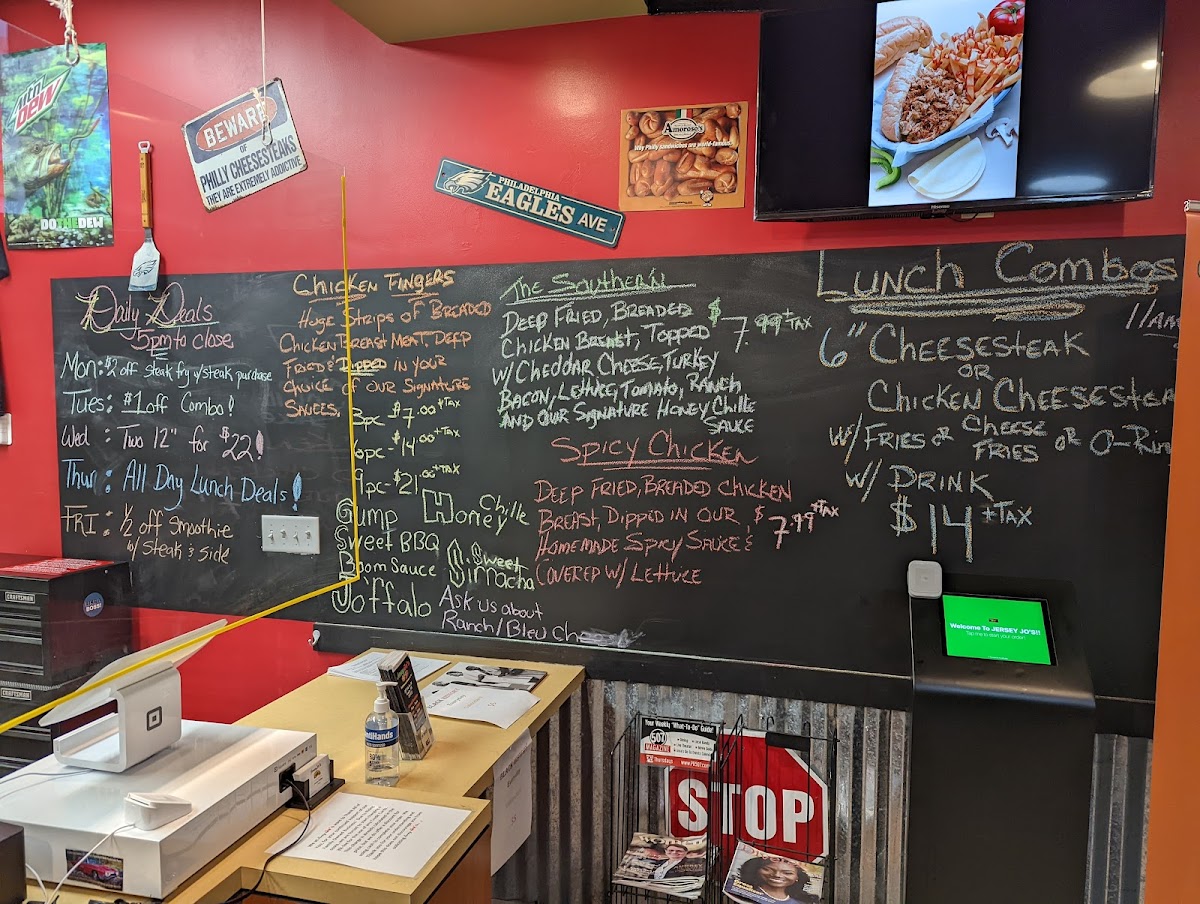 Mtn DEW
DO THE DEW
BEWARE
OF
PHILLY CHEESESTEAKS
THEY ARE EXTREMELY ADDICTIVE
PHILADELPHIA
EAGLES AVE
Amoroso's
Why Philly sandwiches are world-famous.
Hisense
Daily Deals
5pm to close
Mon: $2 off steak fry w/steak purchase
Tues: $1 off Combo!
Wed: Two 12" for $22!
Thur: All Day Lunch Deals!
FRI: 1/2 off Smoothie
w/ Steak & Side
Chicken Fingers
Huge Strips of Breaded
Chicken Breast Meat, Deep
Fried & Dipped in your
Choice of our Signature
Sauces.
3pc - $7.00 + Tax
6pc - $14.00 + Tax
9pc - $21.00 + Tax
Gump
Honey Chille
Sweet BBQ
Boom Sauce
Sweet Sirracha
Joffalo
Ask us about
Ranch/Bleu Che
The Southern'
Deep Fried, Breaded
Chicken Breast, Topped
w/ Cheddar Cheese, Turkey
Bacon, Lettuce, Tomato, Ranch
And our Signature Honey Chille
Sauce
$7.99 + TAX
Spicy Chicken
Deep Fried, Breaded Chicken
Breast, Dipped in our
Homemade Spicy Sauce &
Covered w/ Lettuce
$7.99 + TAX
Lunch Combos
11am
6" Cheesesteak
or
Chicken Cheesestea
w/ Fries or Cheese Fries or O-Rin
w/ Drink
$14 + TAX
Welcome To JERSEY JO'S!!
Tap me to start your order!
CRAFTSMAN
CRAFTSMAN
BOSS!
Your Weekly "What-To-Do" Guide!
MAGAZINE
Thursdays
STOP